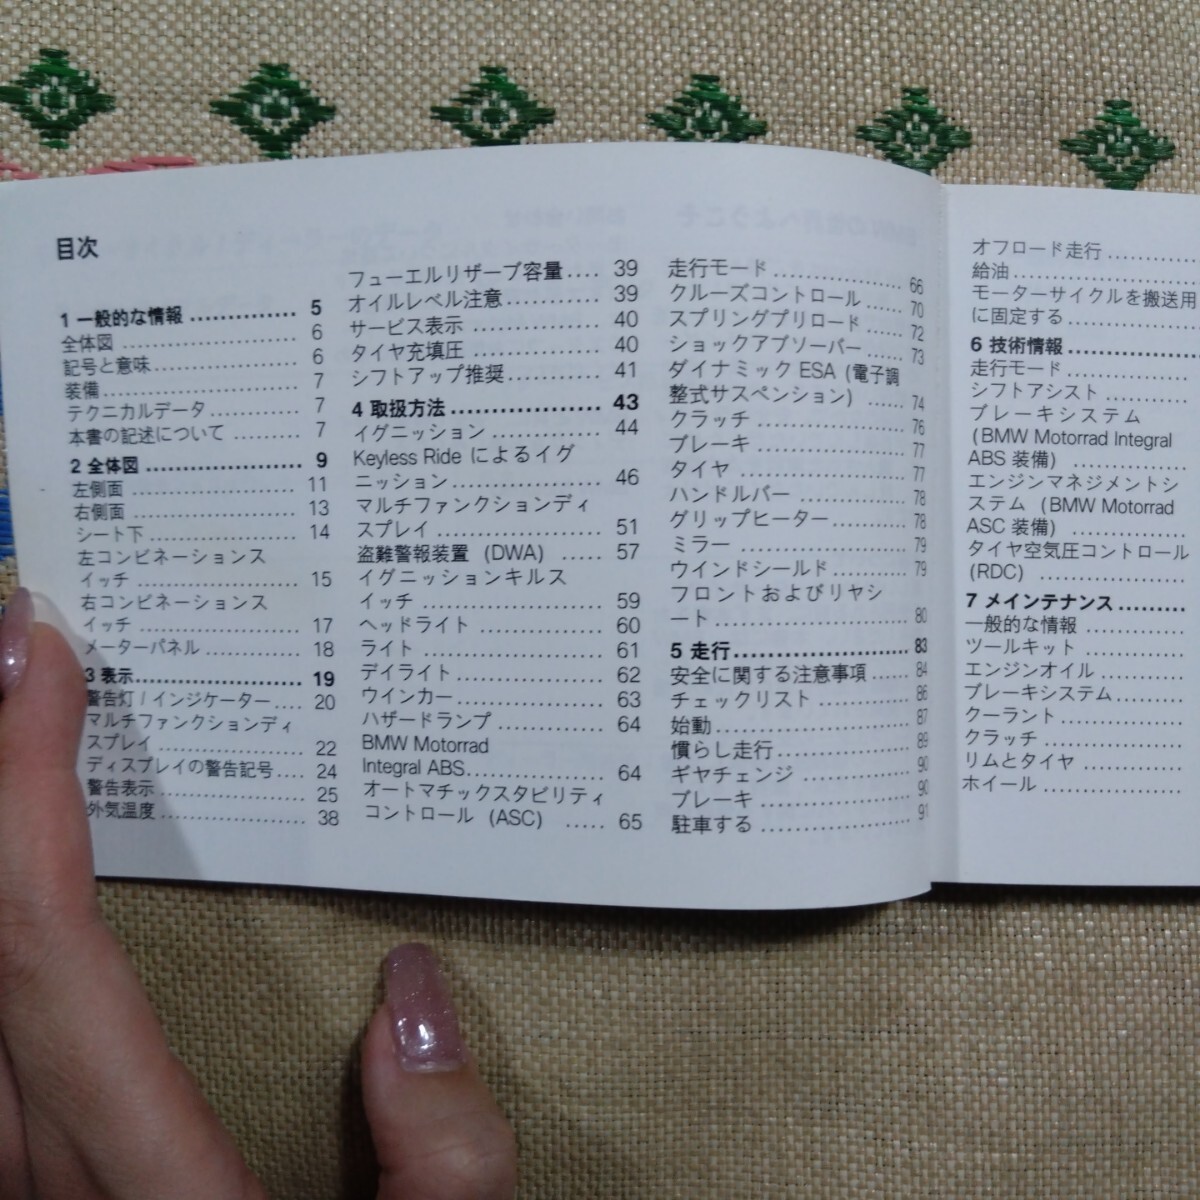 目次
1 一般的な情報 .............. 5
全体図 ........................ 6
記号と意味.................... 6
装備............................ 7
テクニカルデータ ............ 7
本書の記述について ......... 7
2 全体図 .................... 9
左側面 ....................... 11
右側面 ....................... 13
シート下..................... 14
左コンビネーションス
イッチ ....................... 15
右コンビネーションス
イッチ ....................... 17
メーターパネル .............. 18
3 表示........................ 19
警告灯 / インジケーター.... 20
マルチファンクションディ
スプレイ .................... 22
ディスプレイの警告記号.... 24
警告表示 ..................... 25
外気温度..................... 38
フューエルリザーブ容量.... 39
オイルレベル注意............ 39
サービス表示 ................. 40
タイヤ充填圧 ................. 40
シフトアップ推奨............ 41
4 取扱方法................... 43
イグニッション .............. 44
Keyless Ride によるイグ
ニッション................... 46
マルチファンクションディ
スプレイ..................... 51
盗難警報装置 (DWA) ..... 57
イグニッションキルス
イッチ ....................... 59
ヘッドライト ................ 60
ライト ....................... 61
デイライト ................... 62
ウインカー................... 63
ハザードランプ .............. 64
BMW Motorrad
Integral ABS................. 64
オートマチックスタビリティ
コントロール (ASC) ..... 65
走行モード................... 66
クルーズコントロール ...... 70
スプリングプリロード ...... 72
ショックアブソーバー ...... 73
ダイナミック ESA (電子調
整式サスペンション) ...... 74
クラッチ ..................... 76
ブレーキ ..................... 77
タイヤ ....................... 77
ハンドルバー ................. 78
グリップヒーター............ 78
ミラー ....................... 79
ウインドシールド............ 79
フロントおよびリヤシ
ート........................... 80
5 走行........................ 83
安全に関する注意事項 ...... 84
チェックリスト .............. 86
始動........................... 87
慣らし走行................... 89
ギヤチェンジ ................. 90
ブレーキ ..................... 90
駐車する ..................... 91
オフロード走行 ............
給油...........................
モーターサイクルを搬送用
に固定する..................
6 技術情報..................
走行モード..................
シフトアシスト ............
ブレーキシステム
(BMW Motorrad Integral
ABS 装備) ...............
エンジンマネジメントシ
ステム (BMW Motorrad
ASC 装備)..................
タイヤ空気圧コントロール
(RDC) .....................
7 メインテナンス.........
一般的な情報 ..............
ツールキット ..............
エンジンオイル ............
ブレーキシステム.........
クーラント..................
クラッチ ....................
リムとタイヤ ..............
ホイール ....................